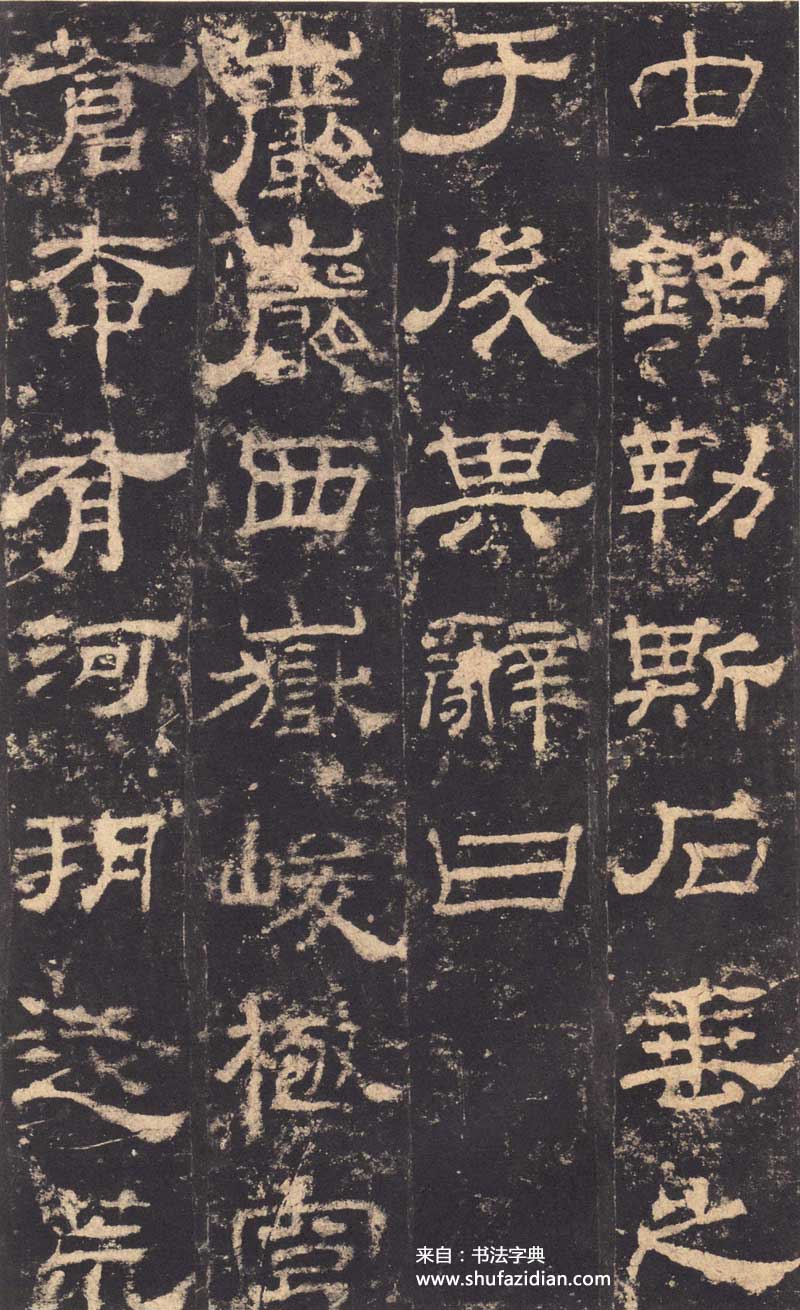 由銘勒斯石垂之
于後其辭曰
巖巖西嶽峻極穹
蒼奄有河朔遂荒
来自：书法字典
www.shufazidian.com